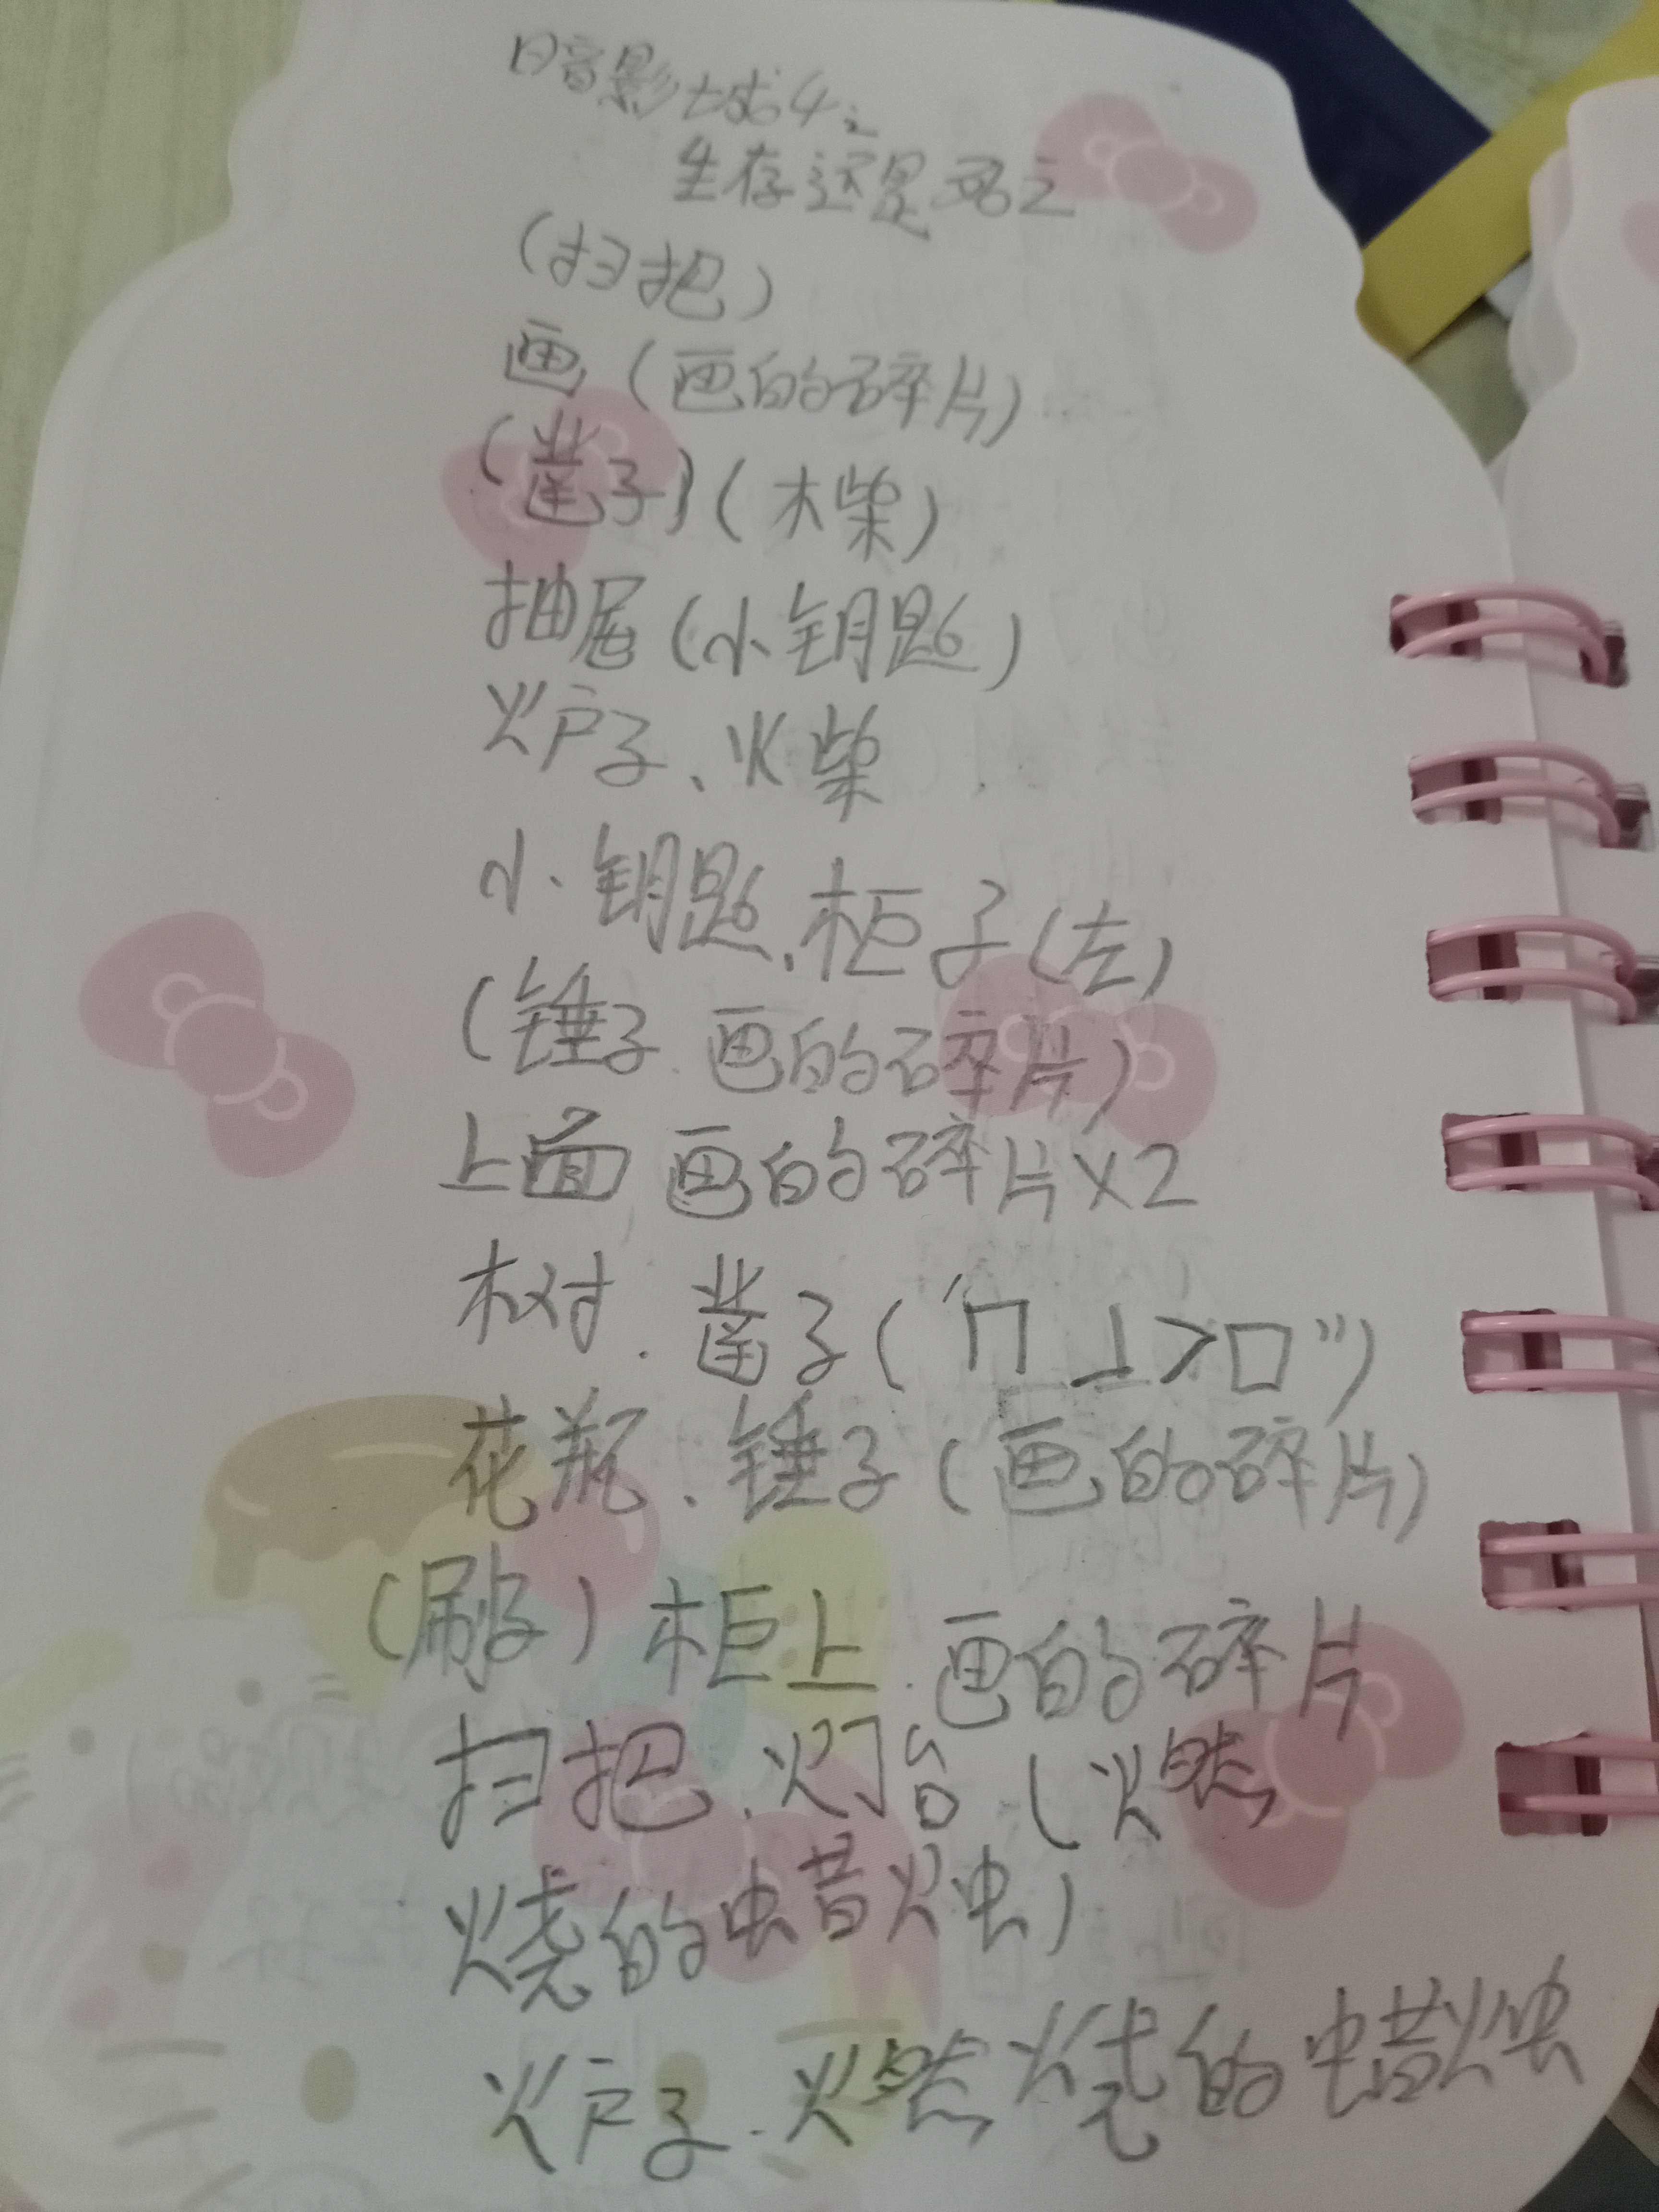 暗影城4:
生存还是死亡
(扫把)
画(画的碎片)
(凿子)(木柴)
抽屉(小钥匙)
火炉子、火柴
小钥匙、柜子(左)
(锤子.画的碎片)
上面 画的碎片×2
树.凿子(“⊓⊥>□”)
花瓶、锤子(画的碎片)
(刷子)柜上.画的碎片
扫把.灯台(燃
烧的蜡烛)
炉子.燃烧的蜡烛